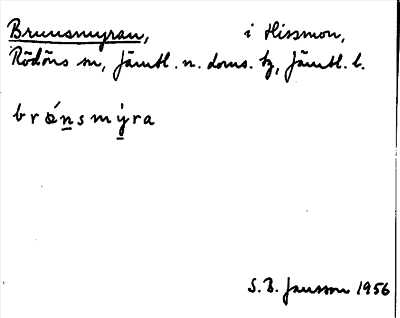 Brunnsmyran, i Hissmon,
Rödöns sn, Jämtl. n. doms. tg, Jämtl. l.
brǿnsmýra
S. B. Jansson 1956